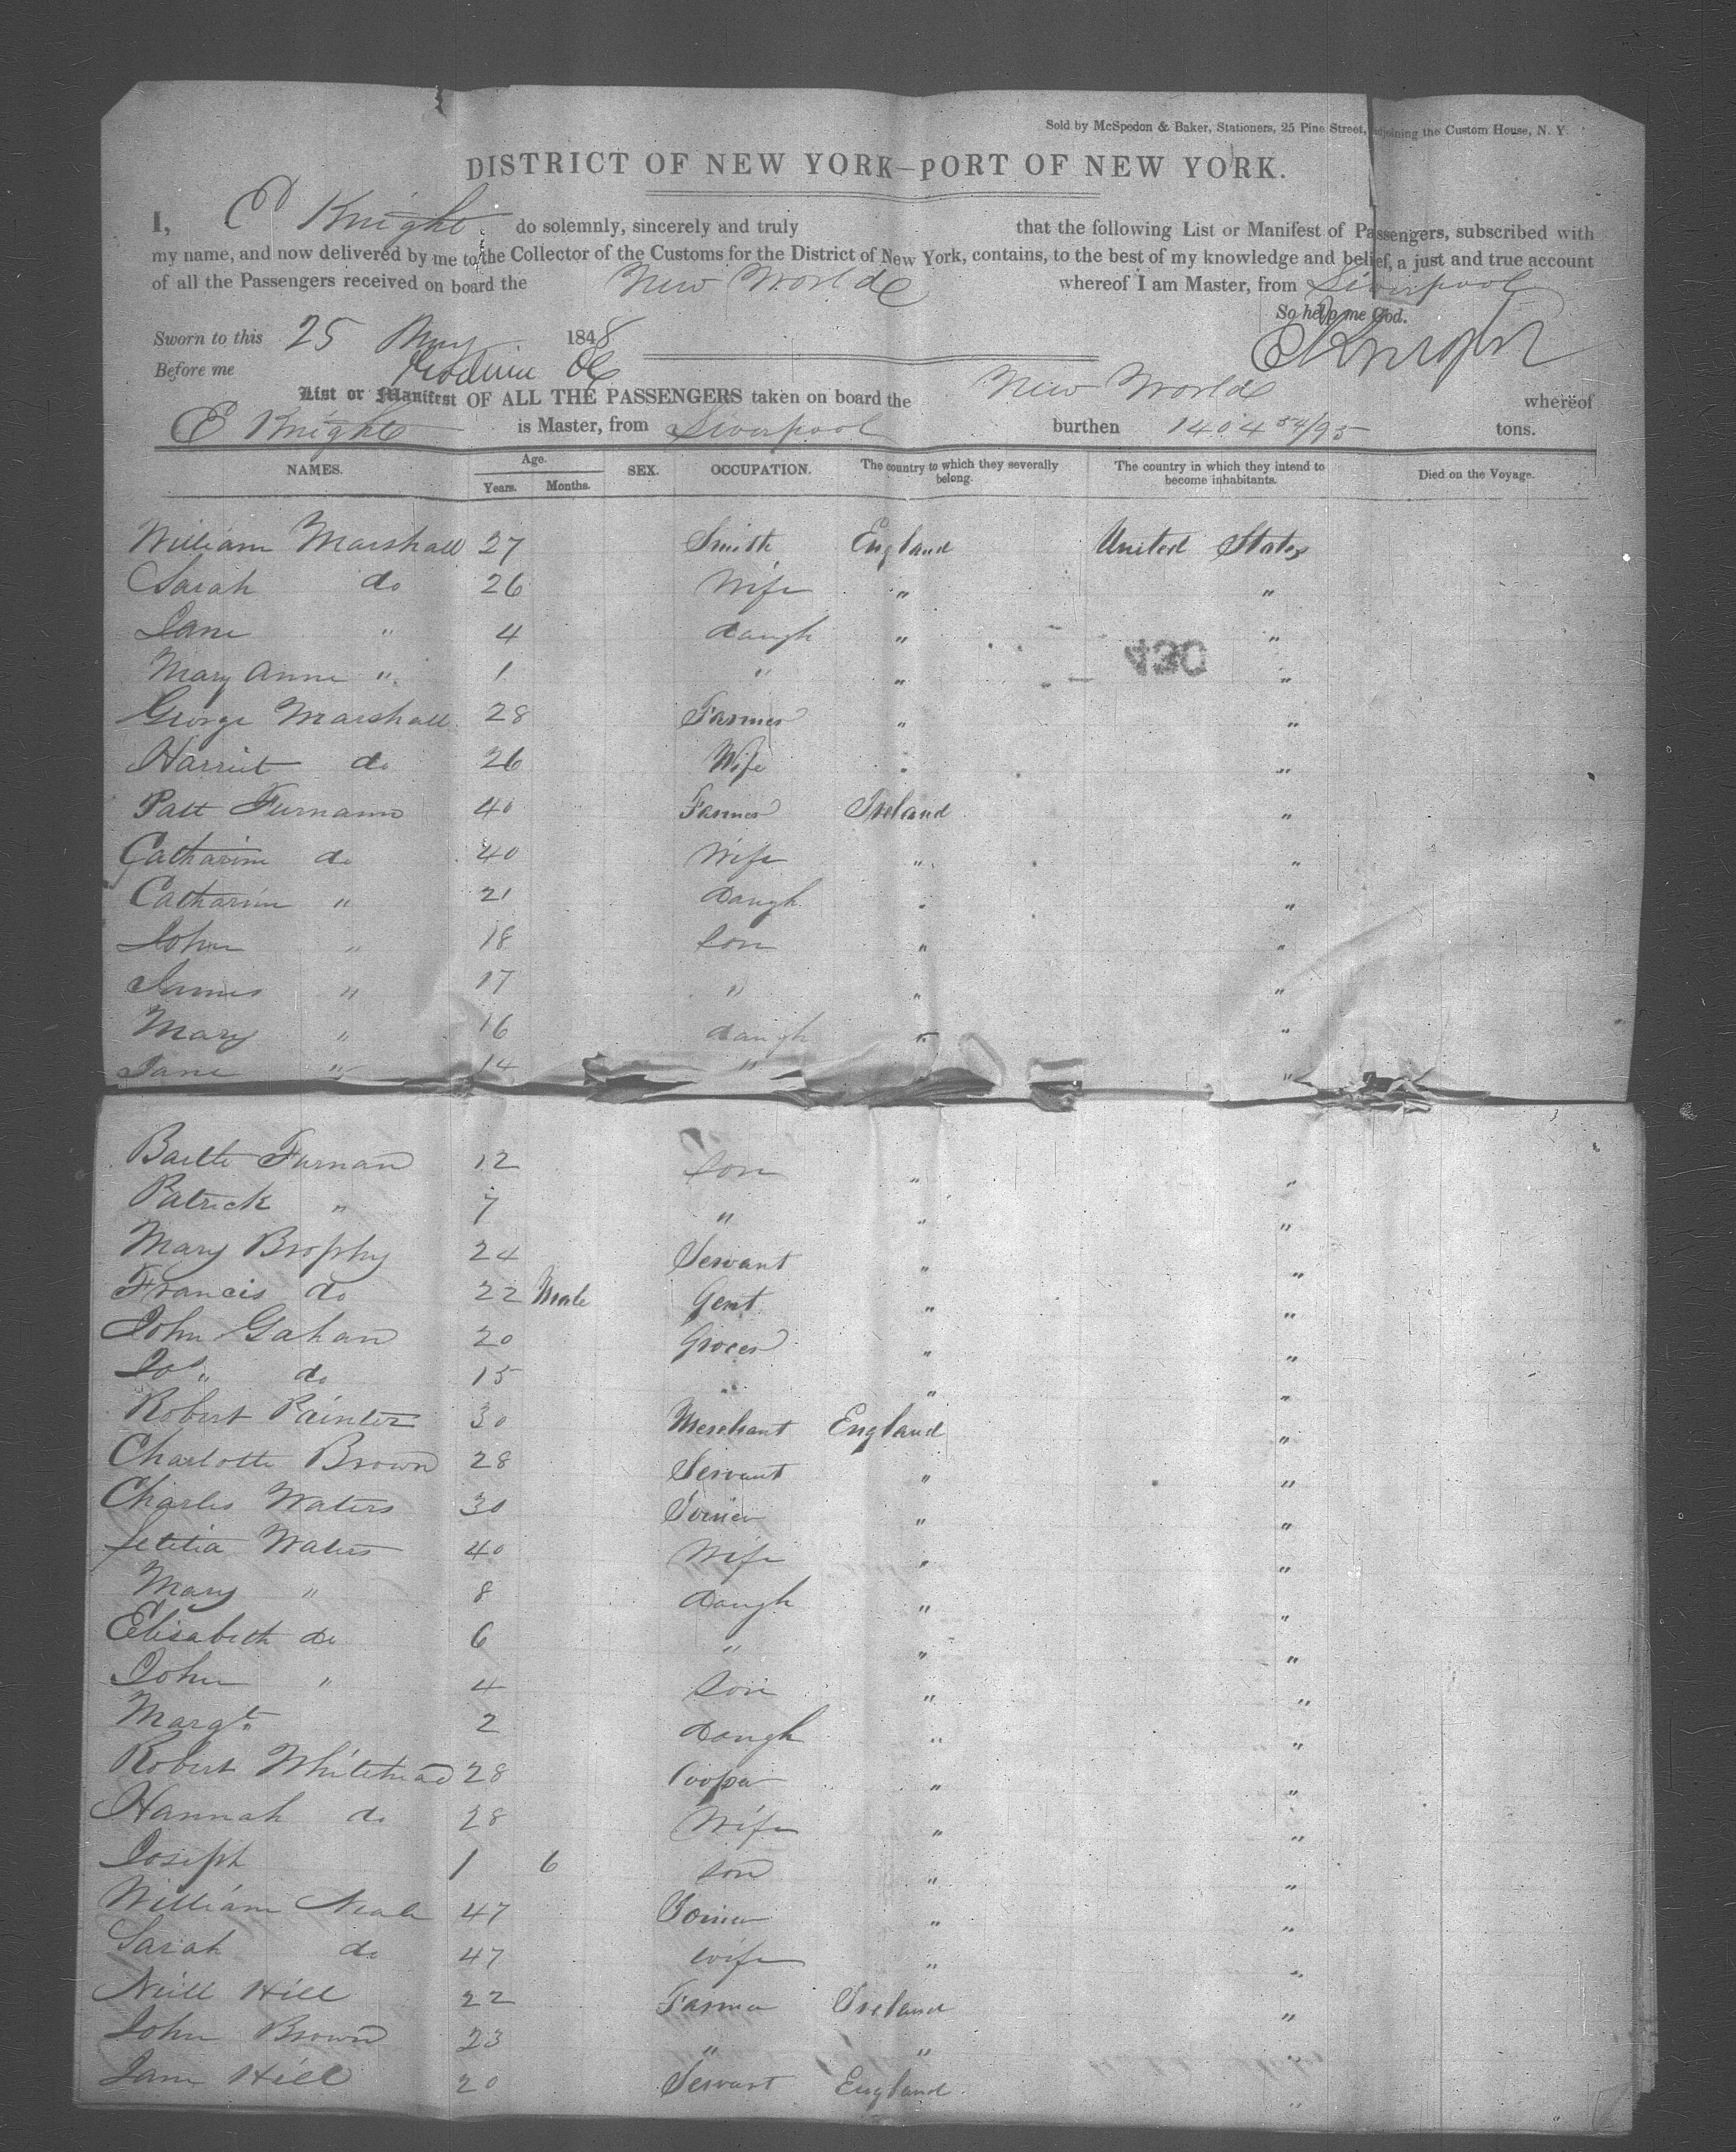 Sold by McSpedon & Baker, Stationers, 25 Pine Street, adjoining the Custom House, N. Y.
DISTRICT OF NEW YORK—PORT OF NEW YORK.
I, E Knight do solemnly, sincerely and truly that the following List or Manifest of Passengers, subscribed with
my name, and now delivered by me to the Collector of the Customs for the District of New York, contains, to the best of my knowledge and belief, a just and true account
of all the Passengers received on board the New World whereof I am Master, from Liverpool
So help me God.
Sworn to this 25 May 1848 E Knight
Before me
List or Manifest OF ALL THE PASSENGERS taken on board the New World whereof
E Knight is Master, from Liverpool burthen 1404 54/95 tons.
NAMES. Age. Years. Months. SEX. OCCUPATION. The country to which they severally belong. The country in which they intend to become inhabitants. Died on the Voyage.
William Marshall 27 Smith England United States
Sarah do 26 Wife " "
Jane " 4 daugh " "
430
Mary Anne " 1 " " "
George Marshall 28 Farmer " "
Harriet do 26 Wife " "
Patt Furnann 40 Farmer Ireland "
Catharine do 40 Wife " "
Catharine " 21 Daugh " "
John " 18 Son " "
James " 17 " " "
Mary " 16 daugh " "
Jane " 14 " "
Furnan 12 Son " "
Patrick " 7 " " "
Mary Brophy 24 Servant " "
Francis do 22 Male Gent " "
John Gahan 20 Grocer " "
Jos " do 15 " " "
Robert Painter 30 Merchant England "
Charlotte Brown 28 Servant " "
Charles Waters 30 Joiner " "
Letitia Waters 40 Wife " "
Mary " 8 Daugh " "
Elisabeth do 6 " " "
John " 4 Son " "
Margt " 2 Daugh " "
Robert Whitehead 28 Cooper " "
Hannah do 28 Wife " "
Joseph 1 6 Son " "
William Neale 47 Joiner " "
Sarah do 47 wife " "
Neill Hill 22 Farmer Ireland "
John Brown 23 " " "
Jane Hill 20 Servant England "